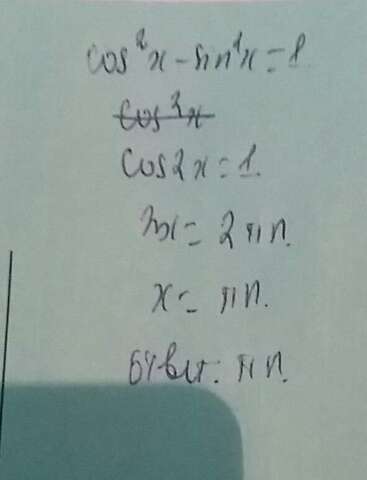 cos²x - sin²x = 1.
cos²x
cos2x = 1.
2x = 2πn.
x = πn.
Ответ: πn.